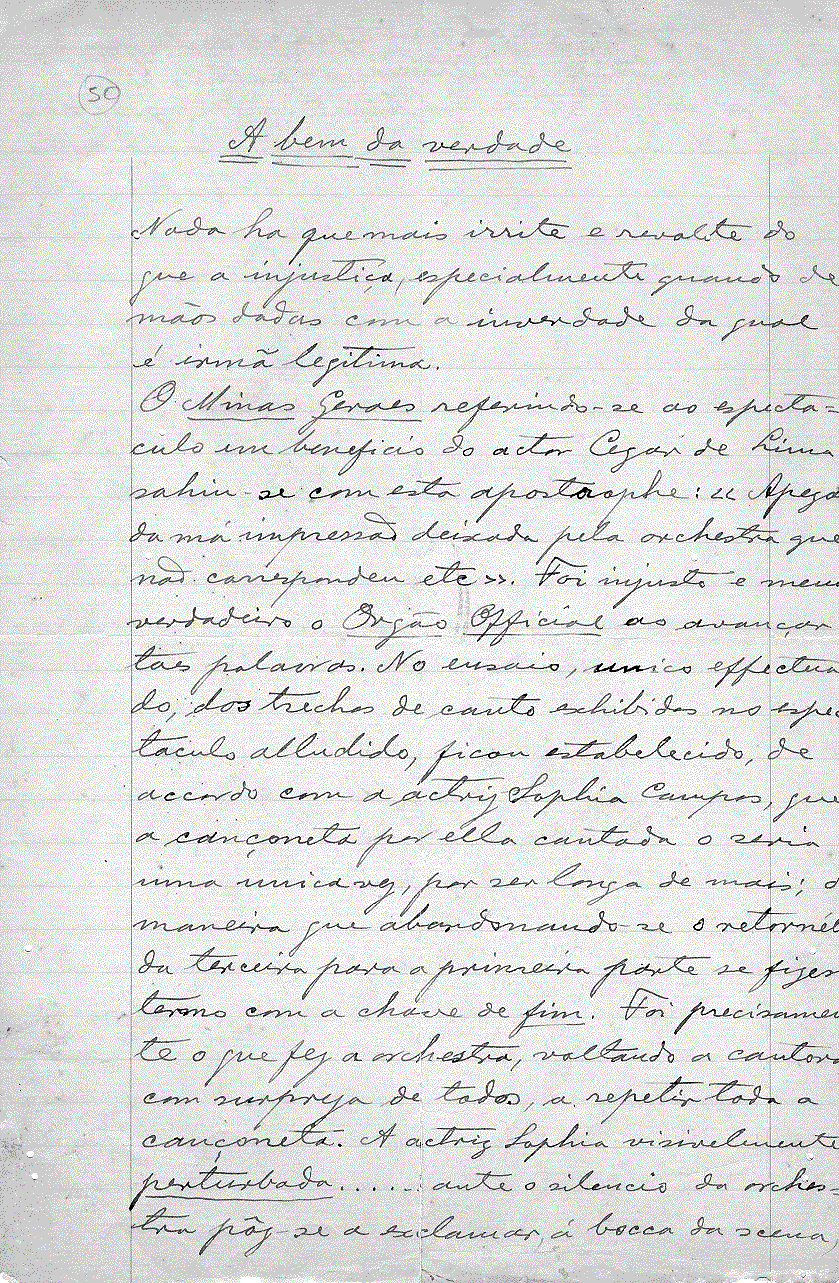 50
A bem da verdade
Nada ha que mais irrite e revolte do
que a injustiça, especialmente quando de
mãos dadas com a inverdade da qual
é irmã legitima.
O Minas Geraes referindo-se ao especta=
culo em beneficio do actor Cezar de Lima
sahiu-se com esta apostrophe: « Apeza
da má impressão deixada pela orchestra que
não correspondeu etc ». Foi injusto e menu
verdadeiro o Orgão Official ao avançar
taes palavras. No ensaio, unico effectua
do, dos trechos de canto exhibidos no espec
taculo alludido, ficou estabelecido, de
accordo com a actriz Sophia Campos, que
a cançoneta por ella cantada o seria
uma unica vez, por ser longa de mais; d
maneira que abandonando-se o retornél
da terceira para a primeira parte se fizes
termo com a chave de fim. Foi precisamen
te o que fez a orchestra, voltando a cantora
com surpreza de todos, a repetir toda a
cançoneta. A actriz Sophia visivelmente
perturbada...... ante o silencio da orches-
tra pôz-se a exclamar, á bocca da scena,